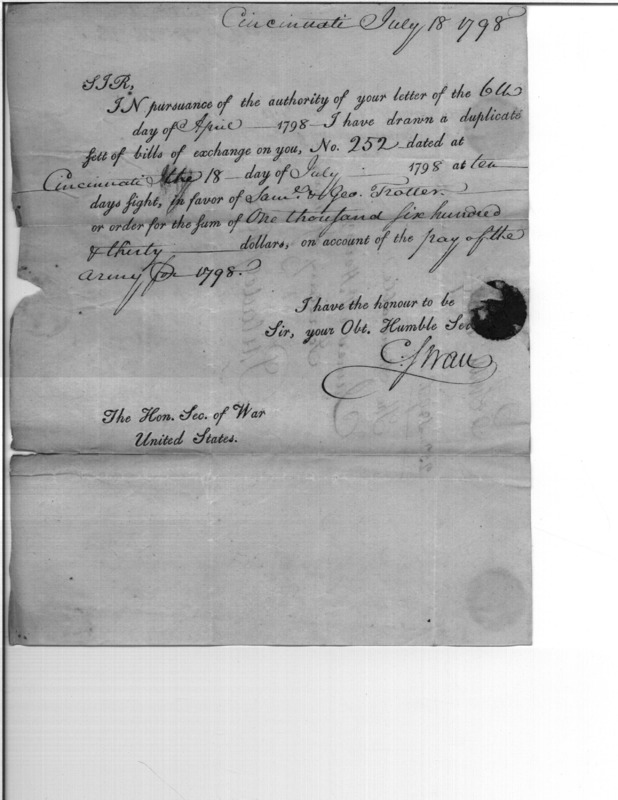 Cincinnati July 18 1798
SIR,
IN pursuance of the authority of your letter of the 6th
day of April 1798 I have drawn a duplicate
sett of bills of exchange on you, No. 252 dated at
Cincinnati the 18 day of July 1798 at ten
days sight, in favor of Saml. & Geo. Trotter.
or order for the sum of One thousand six hundred
& thirty dollars, on account of the pay of the
army for 1798.
I have the honour to be
Sir, your Obt. Humble Ser
C. Swan
The Hon. Sec. of War
United States.